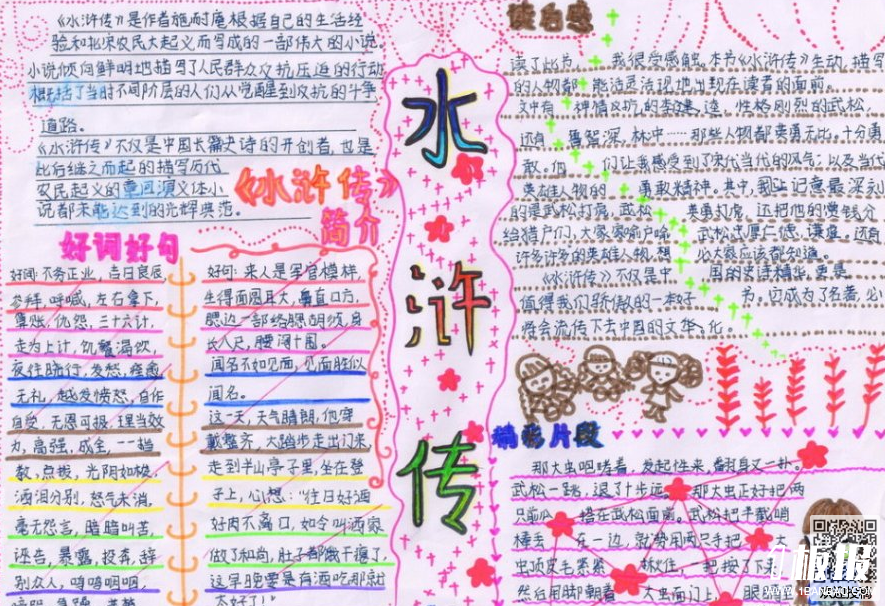 《水浒传》是作者施耐庵根据自己的生活经
验和北宋农民大起义而写成的一部伟大的小说。
小说倾向鲜明地描写了人民群众反抗压迫的行动
概括了当时不同阶层的人们从觉醒到反抗的斗争
道路。
《水浒传》不仅是中国长篇史诗的开创者,也是
此后继之而起的描写历代
农民起义的章回演义体小
说都未能达到的光辉典范。
《水浒传》
简介
好词好句
好词:不务正业,吉日良辰,
参拜,呼喊,左右拿下,
算账,仇怨,三十六计,
走为上计,饥餐渴饮,
夜住晓行,发愁,
无礼,越发愤怒,自作
自受,无恩可报,理当效
力,高强,成全,一一指
教,点拨,光阴如梭,
洒泪分别,怒气未消,
毫无怨言,暗暗叫苦,
诬告,暴露,投奔,辞
别众人,嘻嘻哂哂,
好句:来人是军官模样,
生得面圆耳大,鼻直口方,
腮边一部络腮胡须,身
长八尺,腰阔十围。
闻名不如见面,见面胜似
闻名。
这一天,天气晴朗,他穿
戴整齐,大踏步走出门来,
走到半山亭子里,坐在凳
子上,心想:“往日好酒
好肉不离口,如今叫洒家
做了和尚,肚子都饿干瘪了,
这早晚要是有酒吃那就
太好了!”
水
浒
传
读后感
读了此书 我很受感触。本书《水浒传》生动,描写
的人物都 能活灵活现地出现在读者的面前。
文中有 神情反抗的李逵,性格刚烈的武松,
还有 鲁智深,林冲……那些人物都英勇无比。十分勇
敢。他 们让我感受到了宋代当代的风气;以及当代
英雄人物的 勇敢精神。其中,我让记意最深刻
的是武松打虎,武松 英勇打虎,还把他的赏钱分
给猎户们,大家家喻户晓 武松忠厚仁德,谦虚。还有
许多许多的英雄人物,想 必大家应该都知道。
《水浒传》不仅是中 国的史诗精华,更是
值得我们骄傲的一本好 书。它成为了名著,必
将会流传下去中国的文华文化。
精彩片段
那大虫咆哮着,发起性来,翻身又一扑。
武松一跳,退了十步远。 那大虫正好把两
只前爪 搭在武松面前。武松把半截哨
棒丢 在一边,就势用两只手把 大
虫顶皮毛紧紧 揪住,一把按了下来
然后用脚朝着 大虫面门上、眼睛里
板报
WWW.1BANBAO.COM